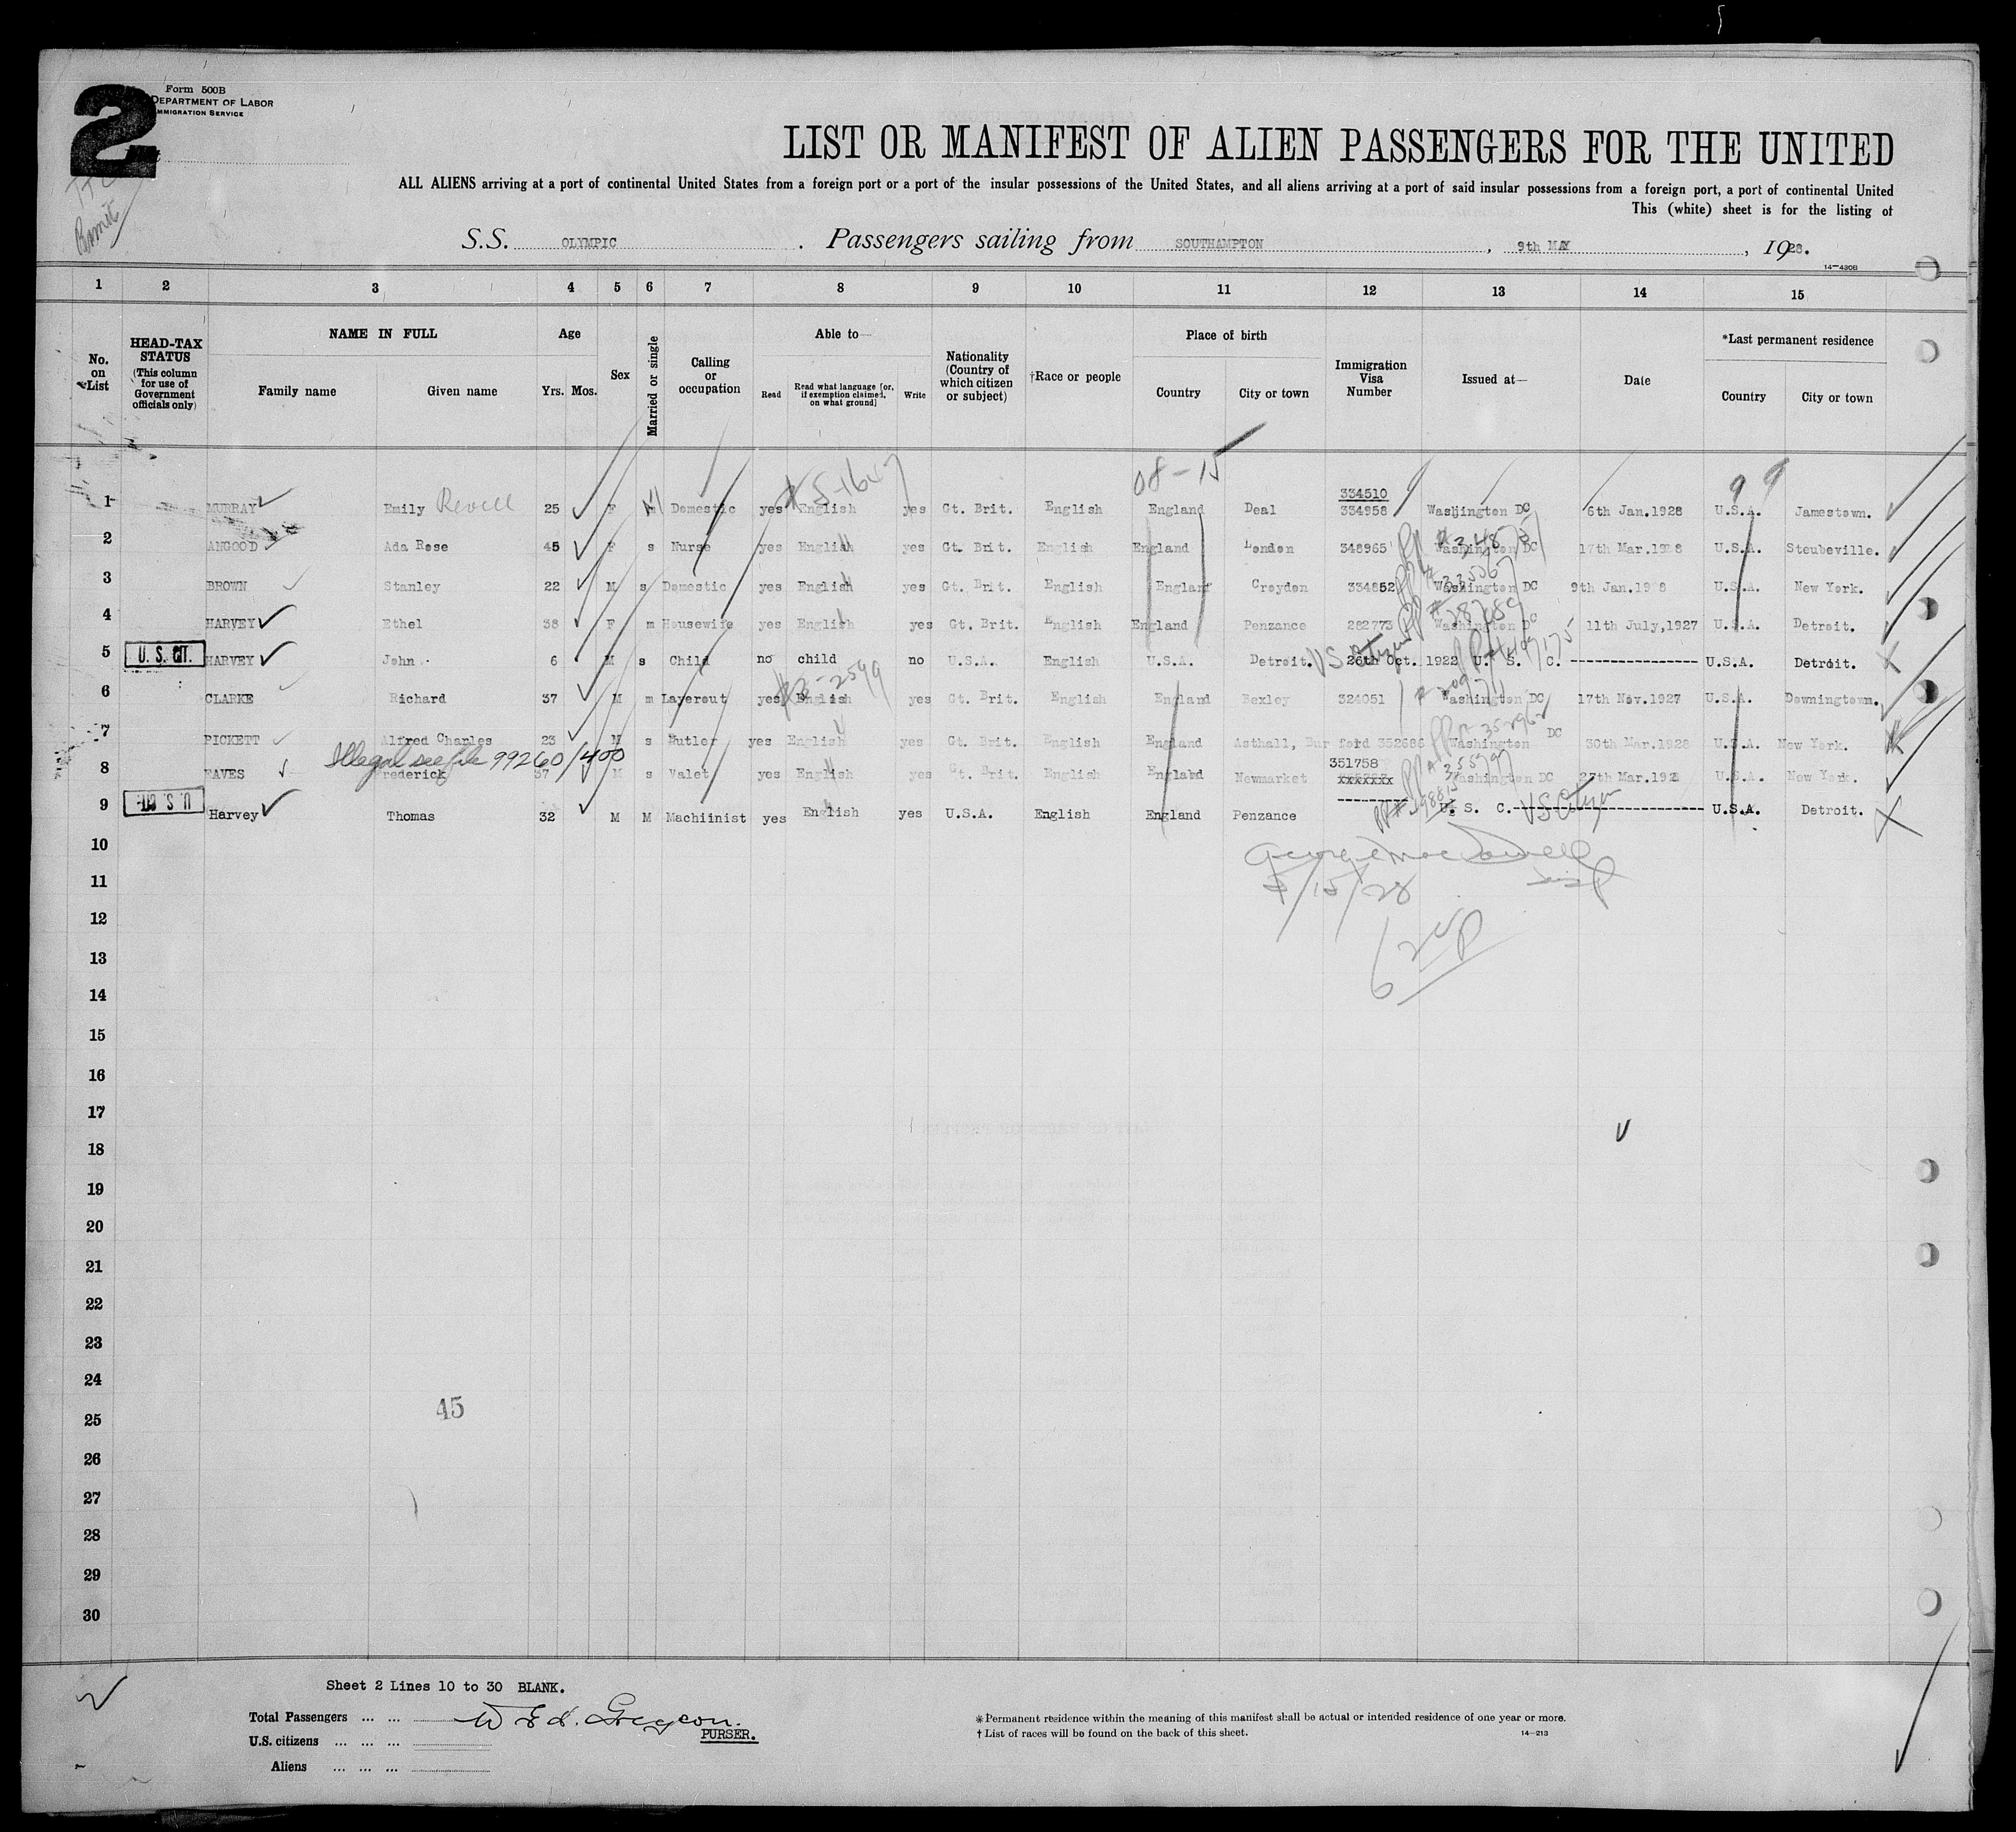 2
Form 500B
DEPARTMENT OF LABOR
IMMIGRATION SERVICE
LIST OR MANIFEST OF ALIEN PASSENGERS FOR THE UNITED
ALL ALIENS arriving at a port of continental United States from a foreign port or a port of the insular possessions of the United States, and all aliens arriving at a port of said insular possessions from a foreign port, a port of continental United
This (white) sheet is for the listing of
S.S. OLYMPIC . Passengers sailing from SOUTHAMPTON , 9th MAY , 1928.
14—430B
1 2 3 4 5 6 7 8 9 10 11 12 13 14 15
No. on List
HEAD-TAX STATUS (This column for use of Government officials only)
NAME IN FULL Family name Given name
Age Yrs. Mos.
Sex
Married or single
Calling or occupation
Able to— Read Read what language [or, if exemption claimed, on what ground] Write
Nationality (Country of which citizen or subject)
†Race or people
Place of birth Country City or town
Immigration Visa Number
Issued at—
Date
*Last permanent residence Country City or town
08-15
99
334510
1 MURRAY Emily Revell 25 F Domestic yes English yes Gt. Brit. English England Deal 334958 Washington DC 6th Jan.1928 U.S.A. Jamestown.
2 ANGOOD Ada Rose 45 F s Nurse yes English yes Gt. Brit. English England London 348965 Washington DC 17th Mar.1928 U.S.A. Steubeville.
3 BROWN Stanley 22 M s Domestic yes English yes Gt. Brit. English England Croydon 334852 Washington DC 9th Jan.1928 U.S.A. New York.
4 HARVEY Ethel 38 F m Housewife yes English yes Gt. Brit. English England Penzance 282773 Washington DC 11th July,1927 U.S.A. Detroit.
5 U. S. CIT. HARVEY John 6 M s Child no child no U.S.A. English U.S.A. Detroit. US Citizen 26th Oct. 1922 U. S. C. ---------------- U.S.A. Detroit.
6 CLARKE Richard 37 M m Layerout yes English yes Gt. Brit. English England Bexley 324051 Washington DC 17th Nov.1927 U.S.A. Downingtown.
7 PICKETT Alfred Charles 23 M s Butler yes English yes Gt. Brit. English England Asthall, Bur ford 352686 Washington DC 30th Mar.1928 U.S.A. New York.
Illegal see file 99260/400
351758
8 EAVES Frederick 37 M s Valet yes English yes Gt. Brit. English England Newmarket xxxxxxx Washington DC 27th Mar.1928 U.S.A. New York.
9 U. S. CIT. Harvey Thomas 32 M M Machiinist yes English yes U.S.A. English England Penzance ---------- U. S. C. US Citizen ---------------- U.S.A. Detroit.
10
11
5/15/28
12
13
14
15
16
17
18
19
20
21
22
23
24
45
25
26
27
28
29
30
Sheet 2 Lines 10 to 30 BLANK.
Total Passengers ... ...
PURSER.
U.S. citizens ... ... ...
Aliens ... ... ...
*Permanent residence within the meaning of this manifest shall be actual or intended residence of one year or more.
†List of races will be found on the back of this sheet.
14—213